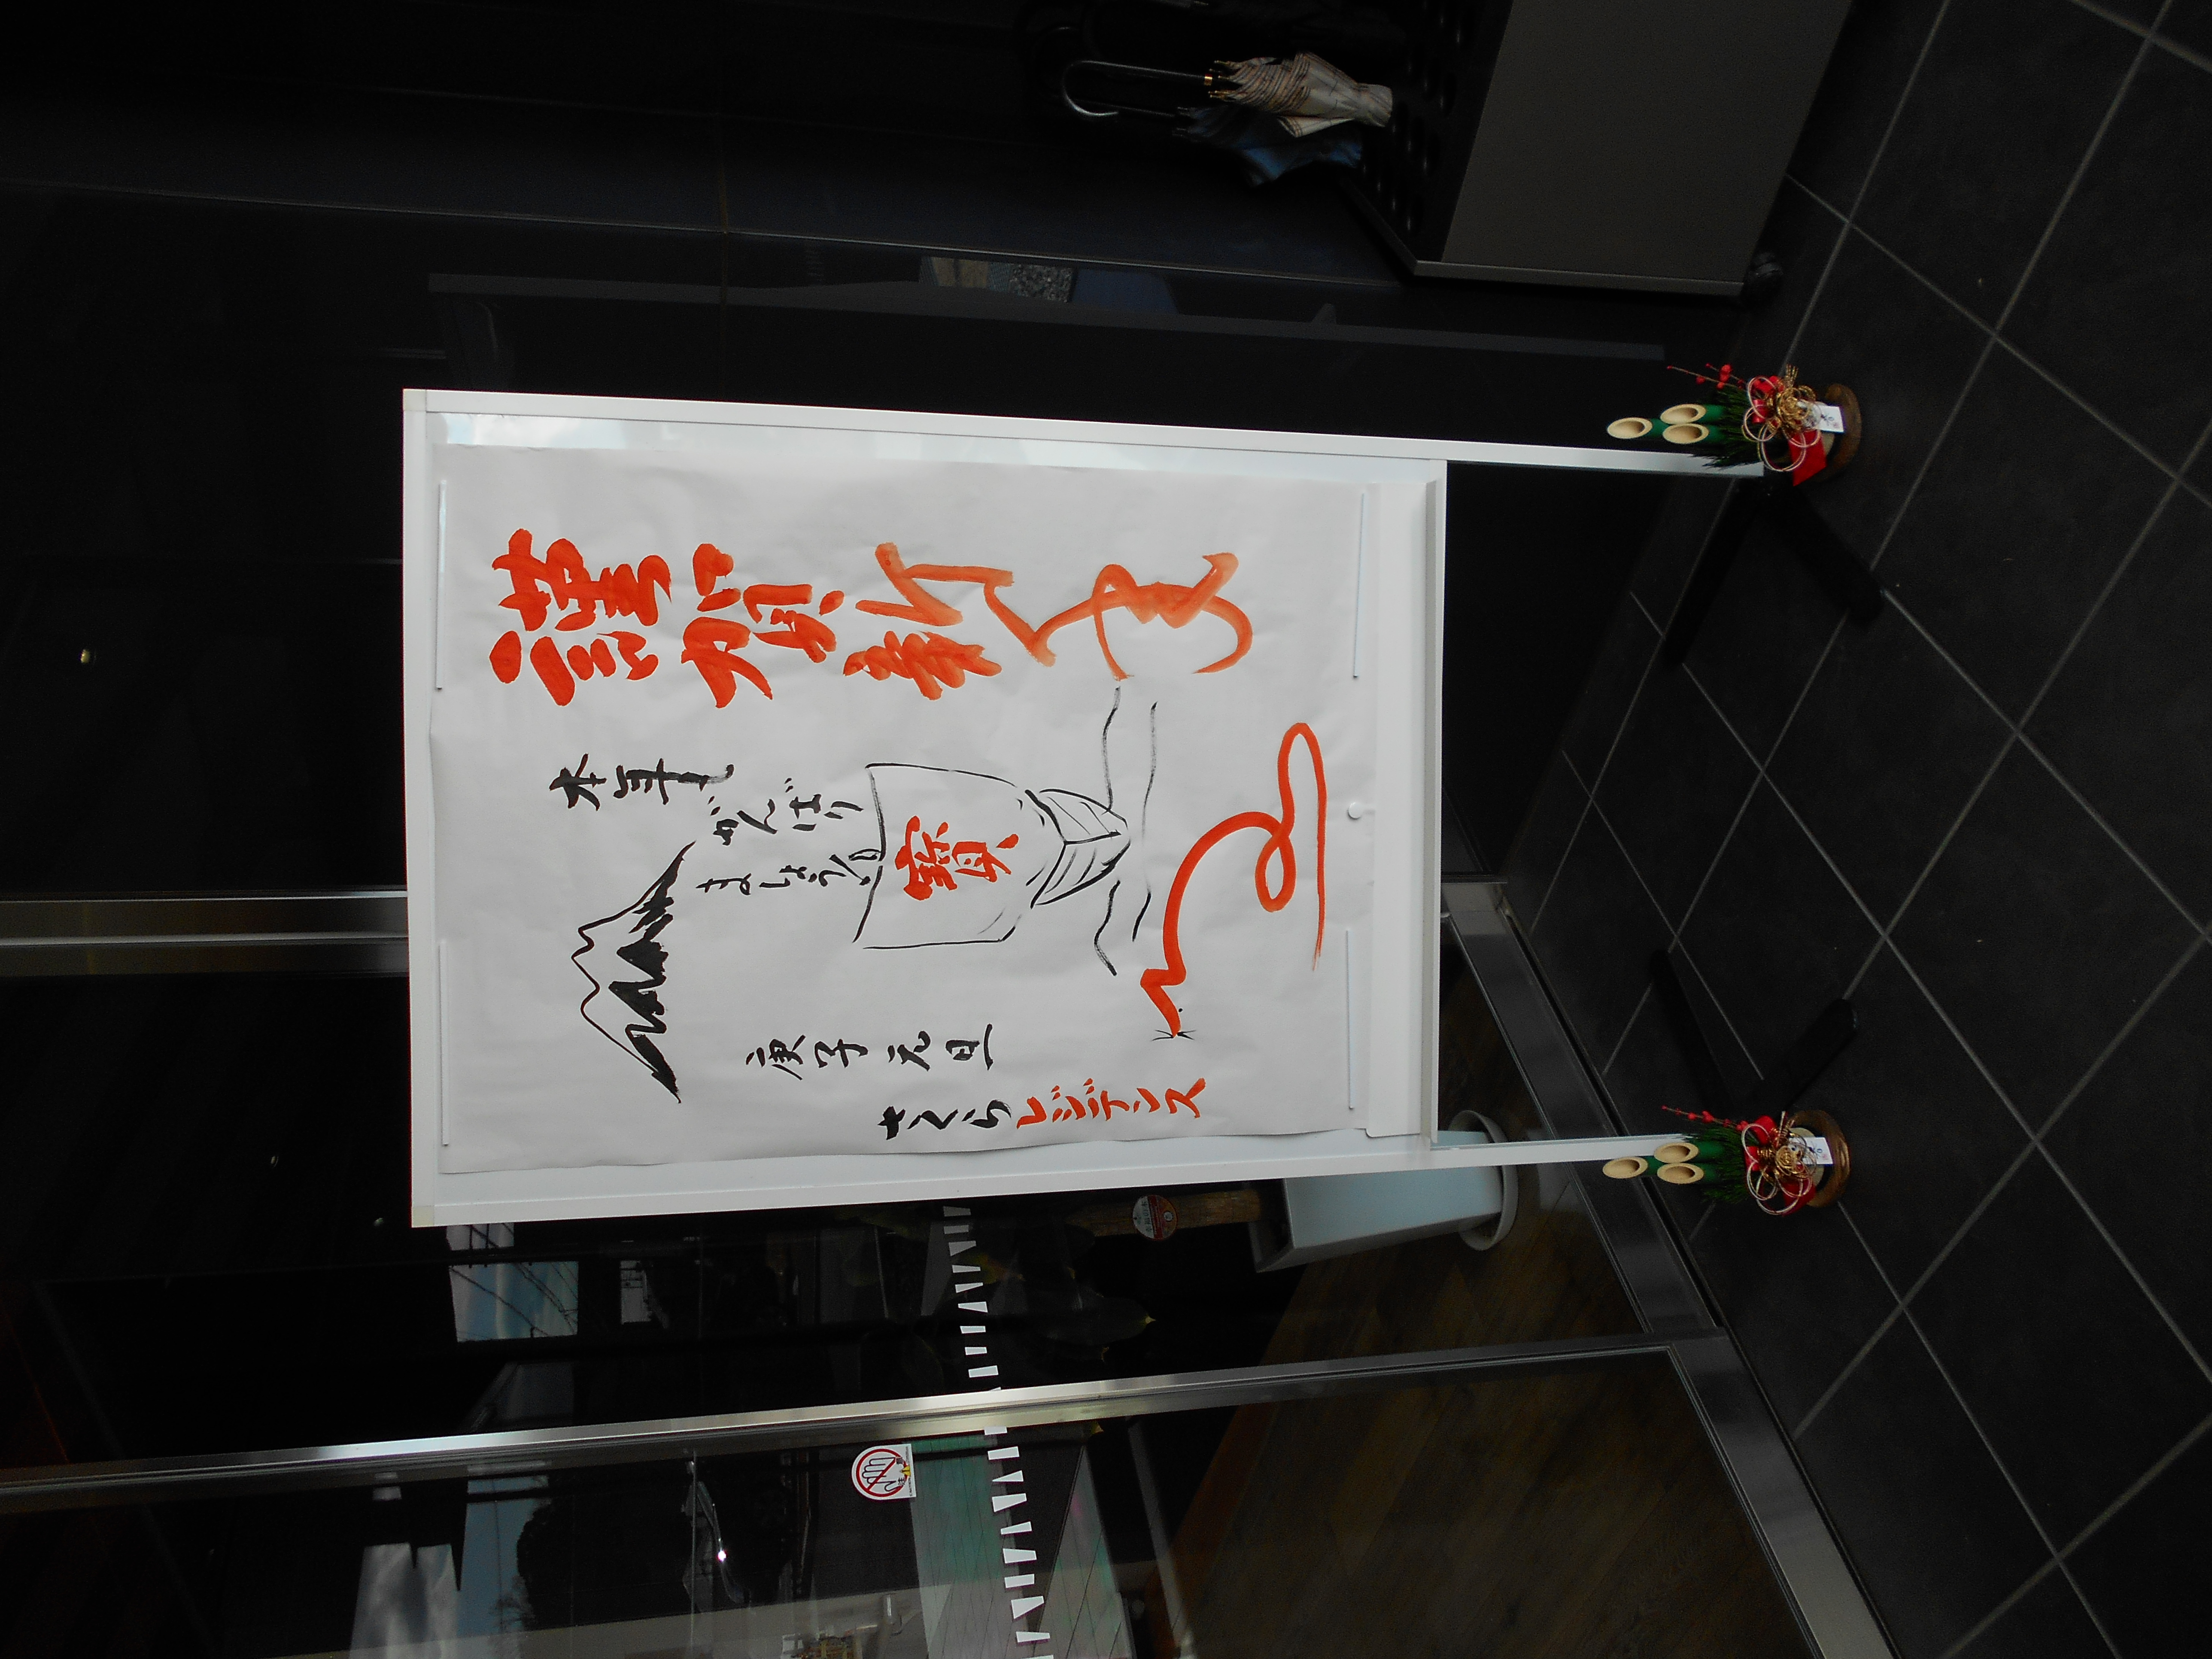 謹賀新年
本年も
がんばり
ましょう
寶
庚子元旦
さくらレジデンス